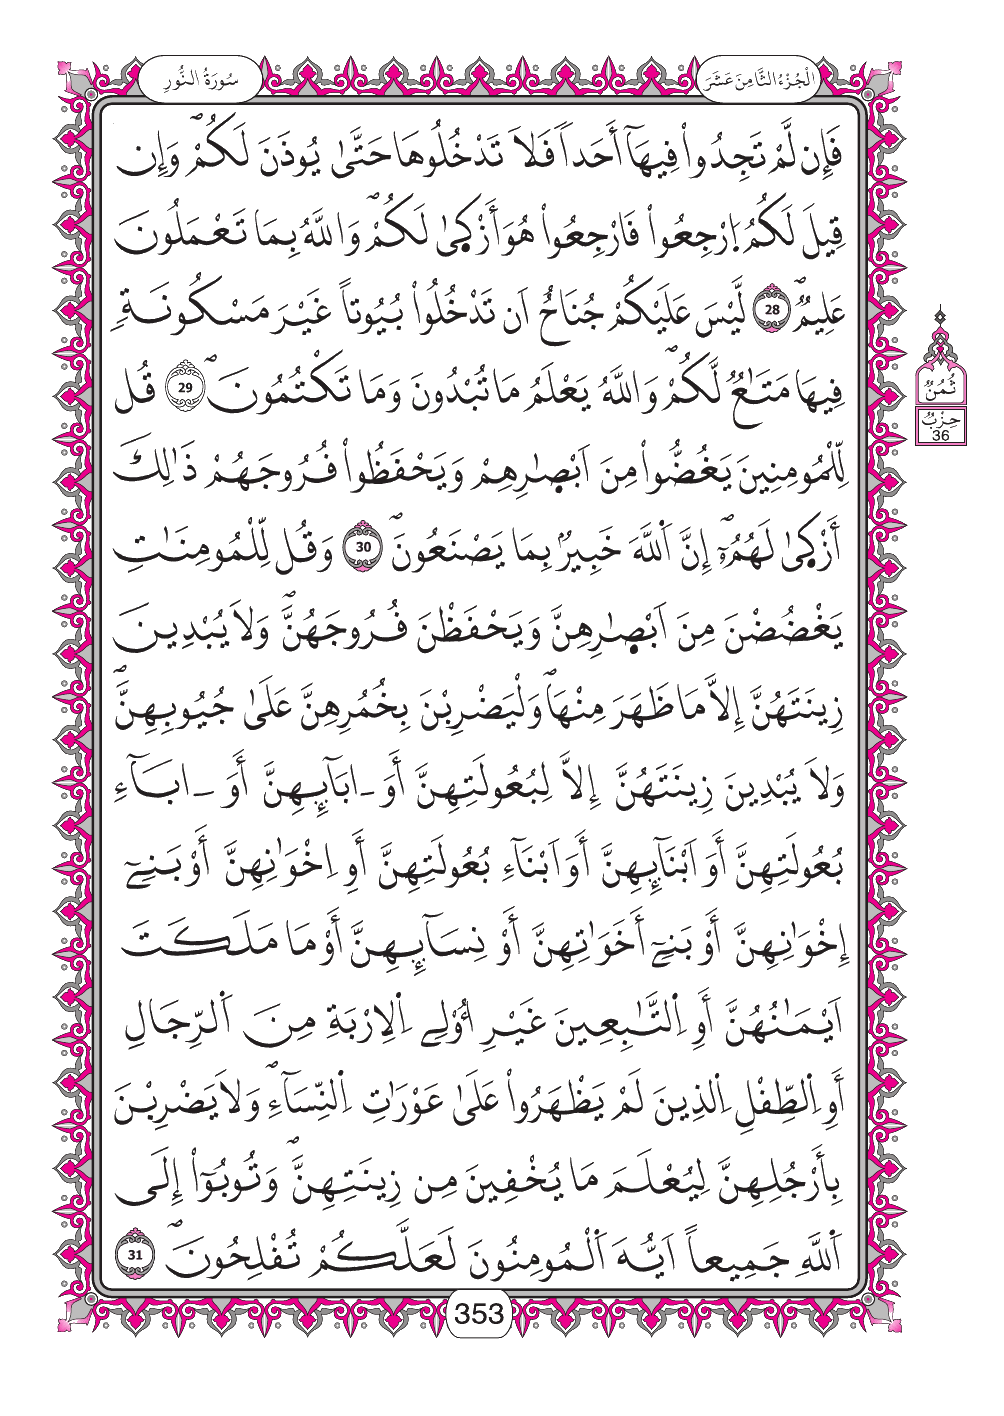 سُورَةُ النُّورِ
الْجُزْءُ الثَّامِنَ عَشَرَ
فَإِن لَّمْ تَجِدُواْ فِيهَآ أَحَداٗ فَلَا تَدْخُلُوهَا حَتَّىٰ يُوذَنَ لَكُمْۖ وَإِن
قِيلَ لَكُمُ اِ۪رْجِعُواْ فَارْجِعُواْ هُوَ أَزْك۪ىٰ لَكُمْۖ وَاللَّهُ بِمَا تَعْمَلُونَ
عَلِيمٞۖ 28 لَّيْسَ عَلَيْكُمْ جُنَاحٌ اَن تَدْخُلُواْ بُيُوتاً غَيْرَ مَسْكُونَةٖ
فِيهَا مَتَٰعٞ لَّكُمْۖ وَاللَّهُ يَعْلَمُ مَا تُبْدُونَ وَمَا تَكْتُمُونَۖ 29 قُل
لِّلْمُومِنِينَ يَغُضُّواْ مِنَ اَبْصٰ۪رِهِمْ وَيَحْفَظُواْ فُرُوجَهُمْ ذَٰلِكَ
أَزْك۪ىٰ لَهُمُۥٓۖ إِنَّ اَ۬للَّهَ خَبِيرُۢ بِمَا يَصْنَعُونَۖ 30 وَقُل لِّلْمُومِنَٰتِ
يَغْضُضْنَ مِنَ اَبْصٰ۪رِهِنَّ وَيَحْفَظْنَ فُرُوجَهُنَّۖ وَلَا يُبْدِينَ
زِينَتَهُنَّ إِلَّا مَا ظَهَرَ مِنْهَاۖ وَلْيَضْرِبْنَ بِخُمُرِهِنَّ عَلَىٰ جُيُوبِهِنَّۖ
وَلَا يُبْدِينَ زِينَتَهُنَّ إِلَّا لِبُعُولَتِهِنَّ أَوَ ـ ابَآئِهِنَّ أَوَ ـ ابَآءِ
بُعُولَتِهِنَّ أَوَ اَبْنَآئِهِنَّ أَوَ اَبْنَآءِ بُعُولَتِهِنَّ أَوِ اِخْوَٰنِهِنَّ أَوْ بَنِےٓ
إِخْوَٰنِهِنَّ أَوْ بَنِےٓ أَخَوَٰتِهِنَّ أَوْ نِسَآئِهِنَّ أَوْ مَا مَلَكَتَ
اَيْمَٰنُهُنَّ أَوِ اِ۬لتَّٰبِعِينَ غَيْرِ أُوْلِے اِ۬لِارْبَةِ مِنَ اَ۬لرِّجَالِ
أَوِ اِ۬لطِّفْلِ اِ۬لذِينَ لَمْ يَظْهَرُواْ عَلَىٰ عَوْرَٰتِ اِ۬لنِّسَآءِۖ وَلَا يَضْرِبْنَ
بِأَرْجُلِهِنَّ لِيُعْلَمَ مَا يُخْفِينَ مِن زِينَتِهِنَّۖ وَتُوبُوٓاْ إِلَى
اَ۬للَّهِ جَمِيعاً اَيُّهَ اَ۬لْمُومِنُونَ لَعَلَّكُمْ تُفْلِحُونَۖ 31
ثُمُنٌ
حِزْبٌ
36
353